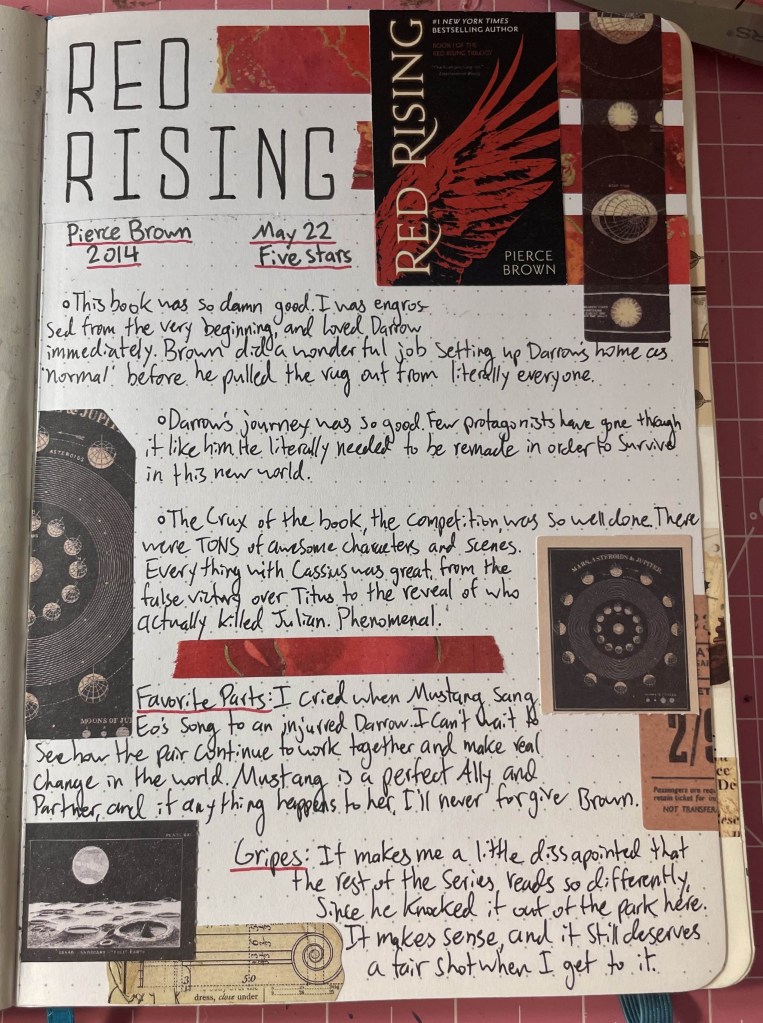 RED
RISING
#1 NEW YORK TIMES
BESTSELLING AUTHOR
BOOK I OF THE
RED RISING TRILOGY
RED RISING
PIERCE
BROWN
Pierce Brown
2014
May 22
Five stars
This book was so damn good. I was engros-
sed from the very beginning, and loved Darrow
immediately. Brown did a wonderful job setting up Darrow's home as
'normal' before he pulled the rug out from literally everyone.
Darrow's journey was so good. Few protagonists have gone though
it like him. He literally needed to be remade in order to survive
in this new world.
The Crux of the book, the competition, was so well done. There
were TONS of awesome characters and scenes.
Everything with Cassius was great, from the
false victory over Titus to the reveal of who
actually killed Julian. Phenomenal.
Favorite Parts: I cried when Mustang sang
Eo's song to an injurred Darrow. I can't wait to
see how the pair continue to work together and make real
change in the world. Mustang is a perfect Ally and
Partner, and if anything happens to her, I'll never forgive Brown.
Gripes: It makes me a little dissapointed that
the rest of the series reads so differently,
Since he knocked it out of the park here.
It makes sense, and it still deserves
a fair shot when I get to it.
& JUPIT
ASTEROIDS
MOONS OF JUP
MARS, ASTEROIDS & JUPITER.
2/9
Passengers are requ
retain ticket for ins
NOT TRANSFERA
De
5:0
dress, close under